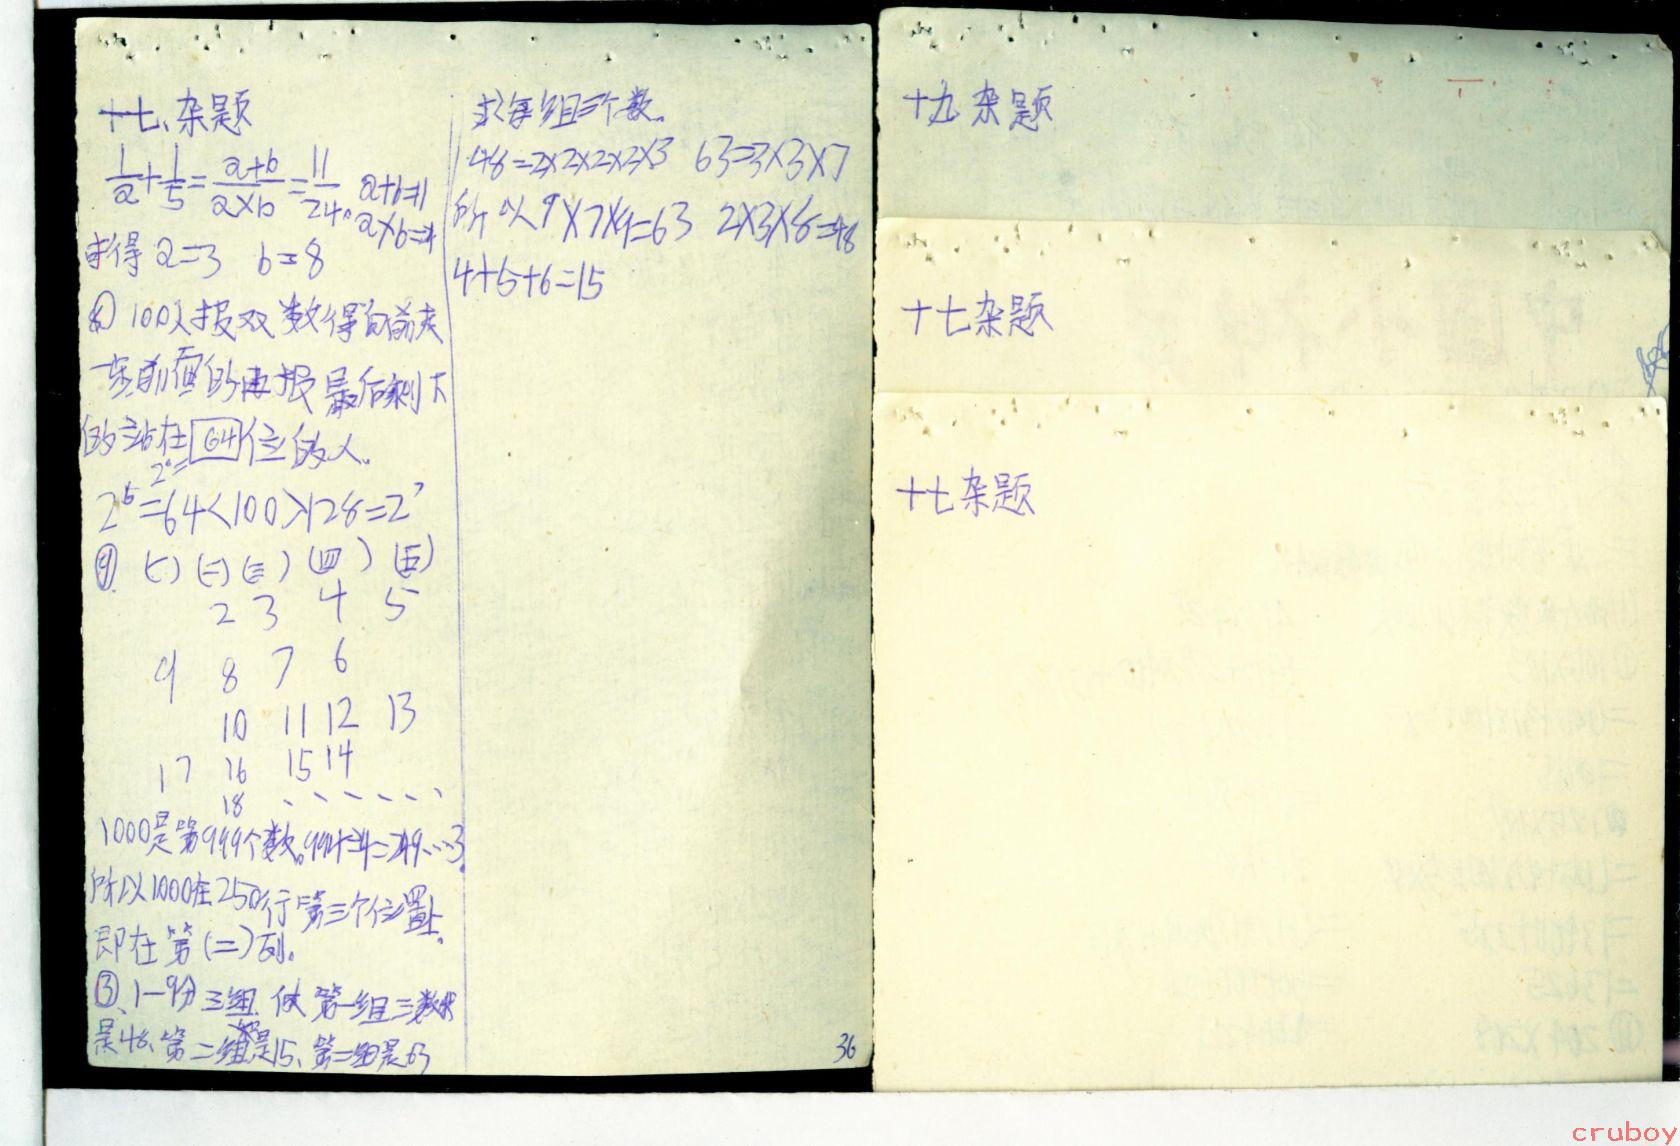 十七、杂题
1/a+1/5=a+b/a×b=11/24。a+b=11
a×b=4
求得 a=3 b=8
100人报双数得向前走
一步前面的再报最后剩下
的站在64位的人。
2⁶=
2⁵=64<100>128=2⁷
④ (一) (二) (三) (四) (五)
2 3 4 5
9 8 7 6
10 11 12 13
17 16 15 14
18 、、、、、、
1000是第999个数。999÷4=249…3.
所以1000在250行第三个位置上。
即在第(二)列。
③、1—9分三组 使第一组三数积
是48、第二组和是15、第三组是63
求每组三个数。
48=2×2×2×2×3 63=3×3×7
所以9×7×1=63 2×3×8=48
4+5+6=15
36
十九 杂题
十七杂题
十七杂题
cruboy